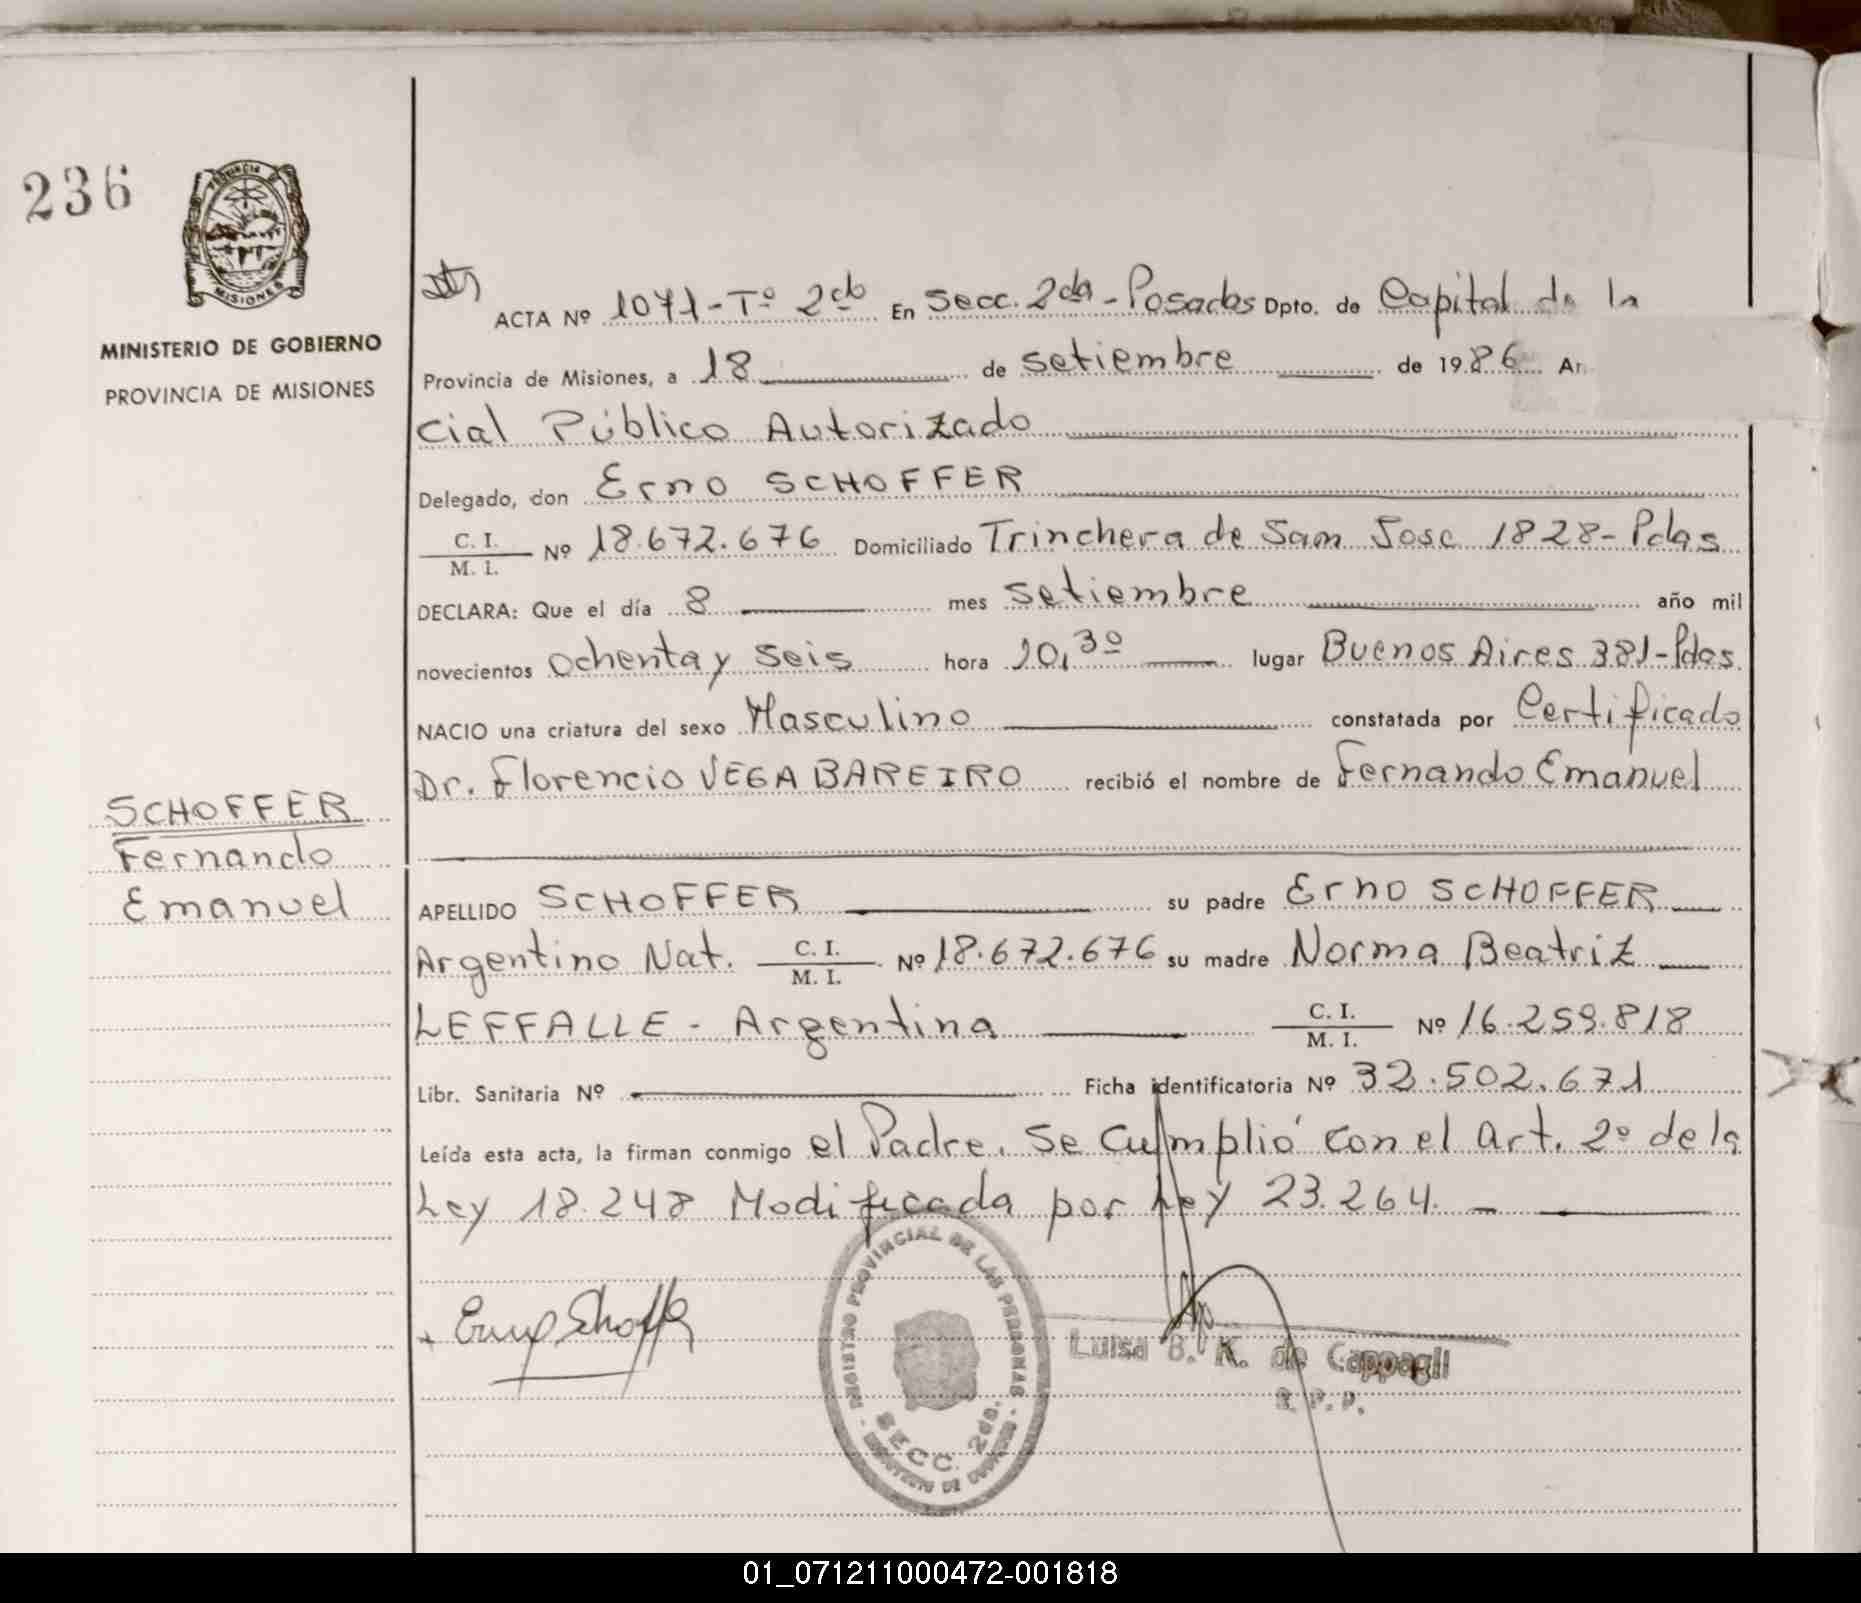 236
PROVINCIA DE
MISIONES
MINISTERIO DE GOBIERNO
PROVINCIA DE MISIONES
ACTA Nº 1071-Tº 2do En Secc. 2da - Posadas Dpto. de Capital de la
Provincia de Misiones, a 18 de setiembre de 1986 An
cial Público Autorizado
Delegado, don Erno SCHOFFER
C. I.
M. I. Nº 18.672.676 Domiciliado Trinchera de San Jose 1828-Pdas
DECLARA: Que el día 8 mes setiembre año mil
novecientos ochenta y seis hora 10,30 lugar Buenos Aires 381-Pdas
NACIO una criatura del sexo Masculino constatada por Certificado
Dr. Florencio VEGA BAREIRO recibió el nombre de Fernando Emanuel
SCHOFFER
Fernando
Emanuel
APELLIDO SCHOFFER su padre Erno SCHOFFER
Argentino Nat. C. I.
M. I. Nº 18.672.676 su madre Norma Beatriz
LEFFALLE - Argentina C. I.
M. I. Nº 16.259.818
Libr. Sanitaria Nº Ficha identificatoria Nº 32.502.671
Leída esta acta, la firman conmigo el Padre. Se Cumplió con el Art. 2º de la
Ley 18.248 Modificada por Ley 23.264.
REGISTRO PROVINCIAL DE LAS PERSONAS
SECC. 2da.
Luisa B. K. de Cappagli
01_071211000472-001818